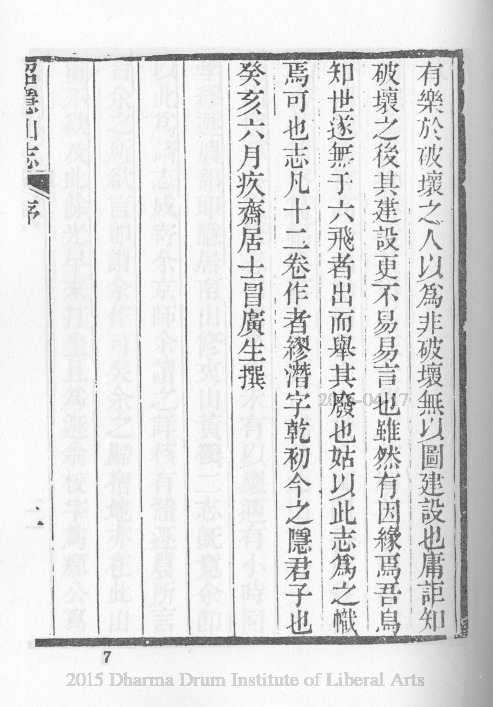 有樂於破壞之人以為非破壞無以圖建設也庸詎知
破壞之後其建設更不易易言也雖然有因緣焉吾烏
知世遂無于六飛者出而舉其廢也姑以此志為之幟
焉可也志凡十二卷作者繆潛字乾初今之隱君子也
癸亥六月疚齋居士冒廣生撰
招隱山志
序
二
7
2015 Dharma Drum Institute of Liberal Arts